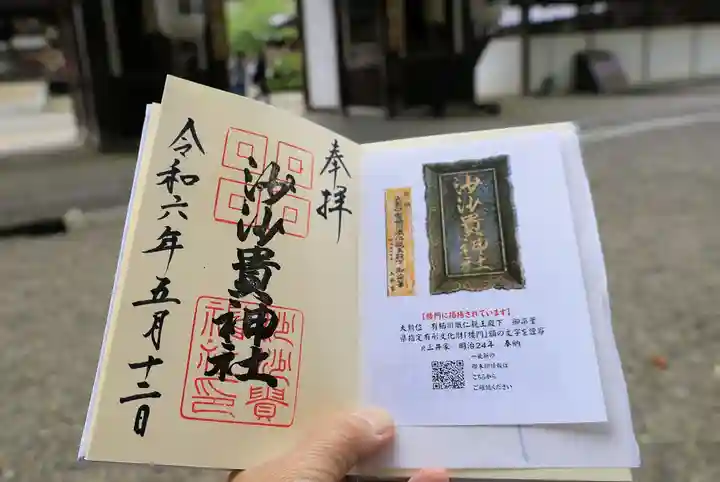 奉拝
沙沙貴神社
令和六年五月十二日
沙沙貴神社
【楼門に掲揚されています】
大勲位 有栖川熾仁親王殿下 御染筆
県指定有形文化財「楼門」額の文字を謹写
明治24年 奉納
こちらから
ご確認ください